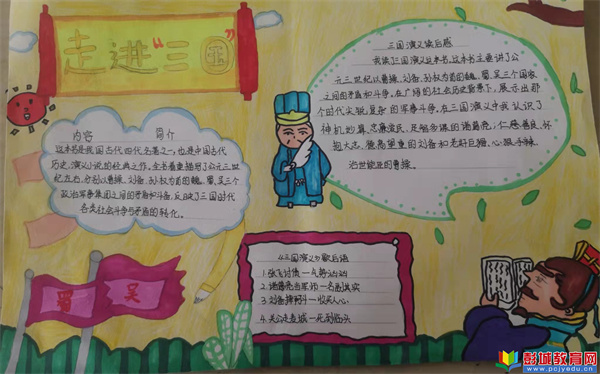 走进“三国”
内容 简介
这本书是我国古代四大名著之一,也是中国古代
历史演义小说的经典之作。全书着重描写了公元三世
纪左右,分别以曹操、刘备、孙权为首的魏、蜀、吴三个
政治军事集团之间的矛盾和斗争,反映了三国时代
各类社会斗争与矛盾的转化。
三国演义读后感
我读了三国演义这本书,这本书主要讲了公
元三世纪以曹操、刘备、孙权为首的魏、蜀、吴三个国家
之间的矛盾和斗争。在广阔的社会历史背景下,展示出那
个时代尖锐复杂的军事斗争。在三国演义中我认识了
神机妙算、忠肃谨厚、足智多谋的诸葛亮;仁慈善良、怀
抱大志、德高望重的刘备和老奸巨猾、心狠手辣、
治世能臣的曹操。
《三国演义》歇后语
1.张飞讨债一气势汹汹
2.诸葛亮当军师一名副其实
3.刘备摔阿斗一收买人心
4.关公走麦城一死到临头
蜀
吴
彭城教育网
www.pcjyedu.cn